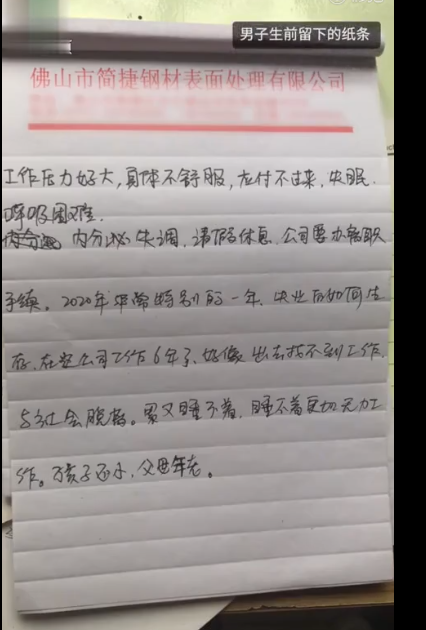 男子生前留下的纸条
佛山市简捷钢材表面处理有限公司
工作压力好大，身体不舒服，应付不过来，失眠.
呼吸困难.
内分泌失调，请假休息，公司要办离职
手续。2020年非常特别的一年，失业后如何生
存，在这公司工作6年了，好像出去找不到工作，
与社会脱离。累又睡不着，睡不着更切无力工
作。孩子还小，父母年老。